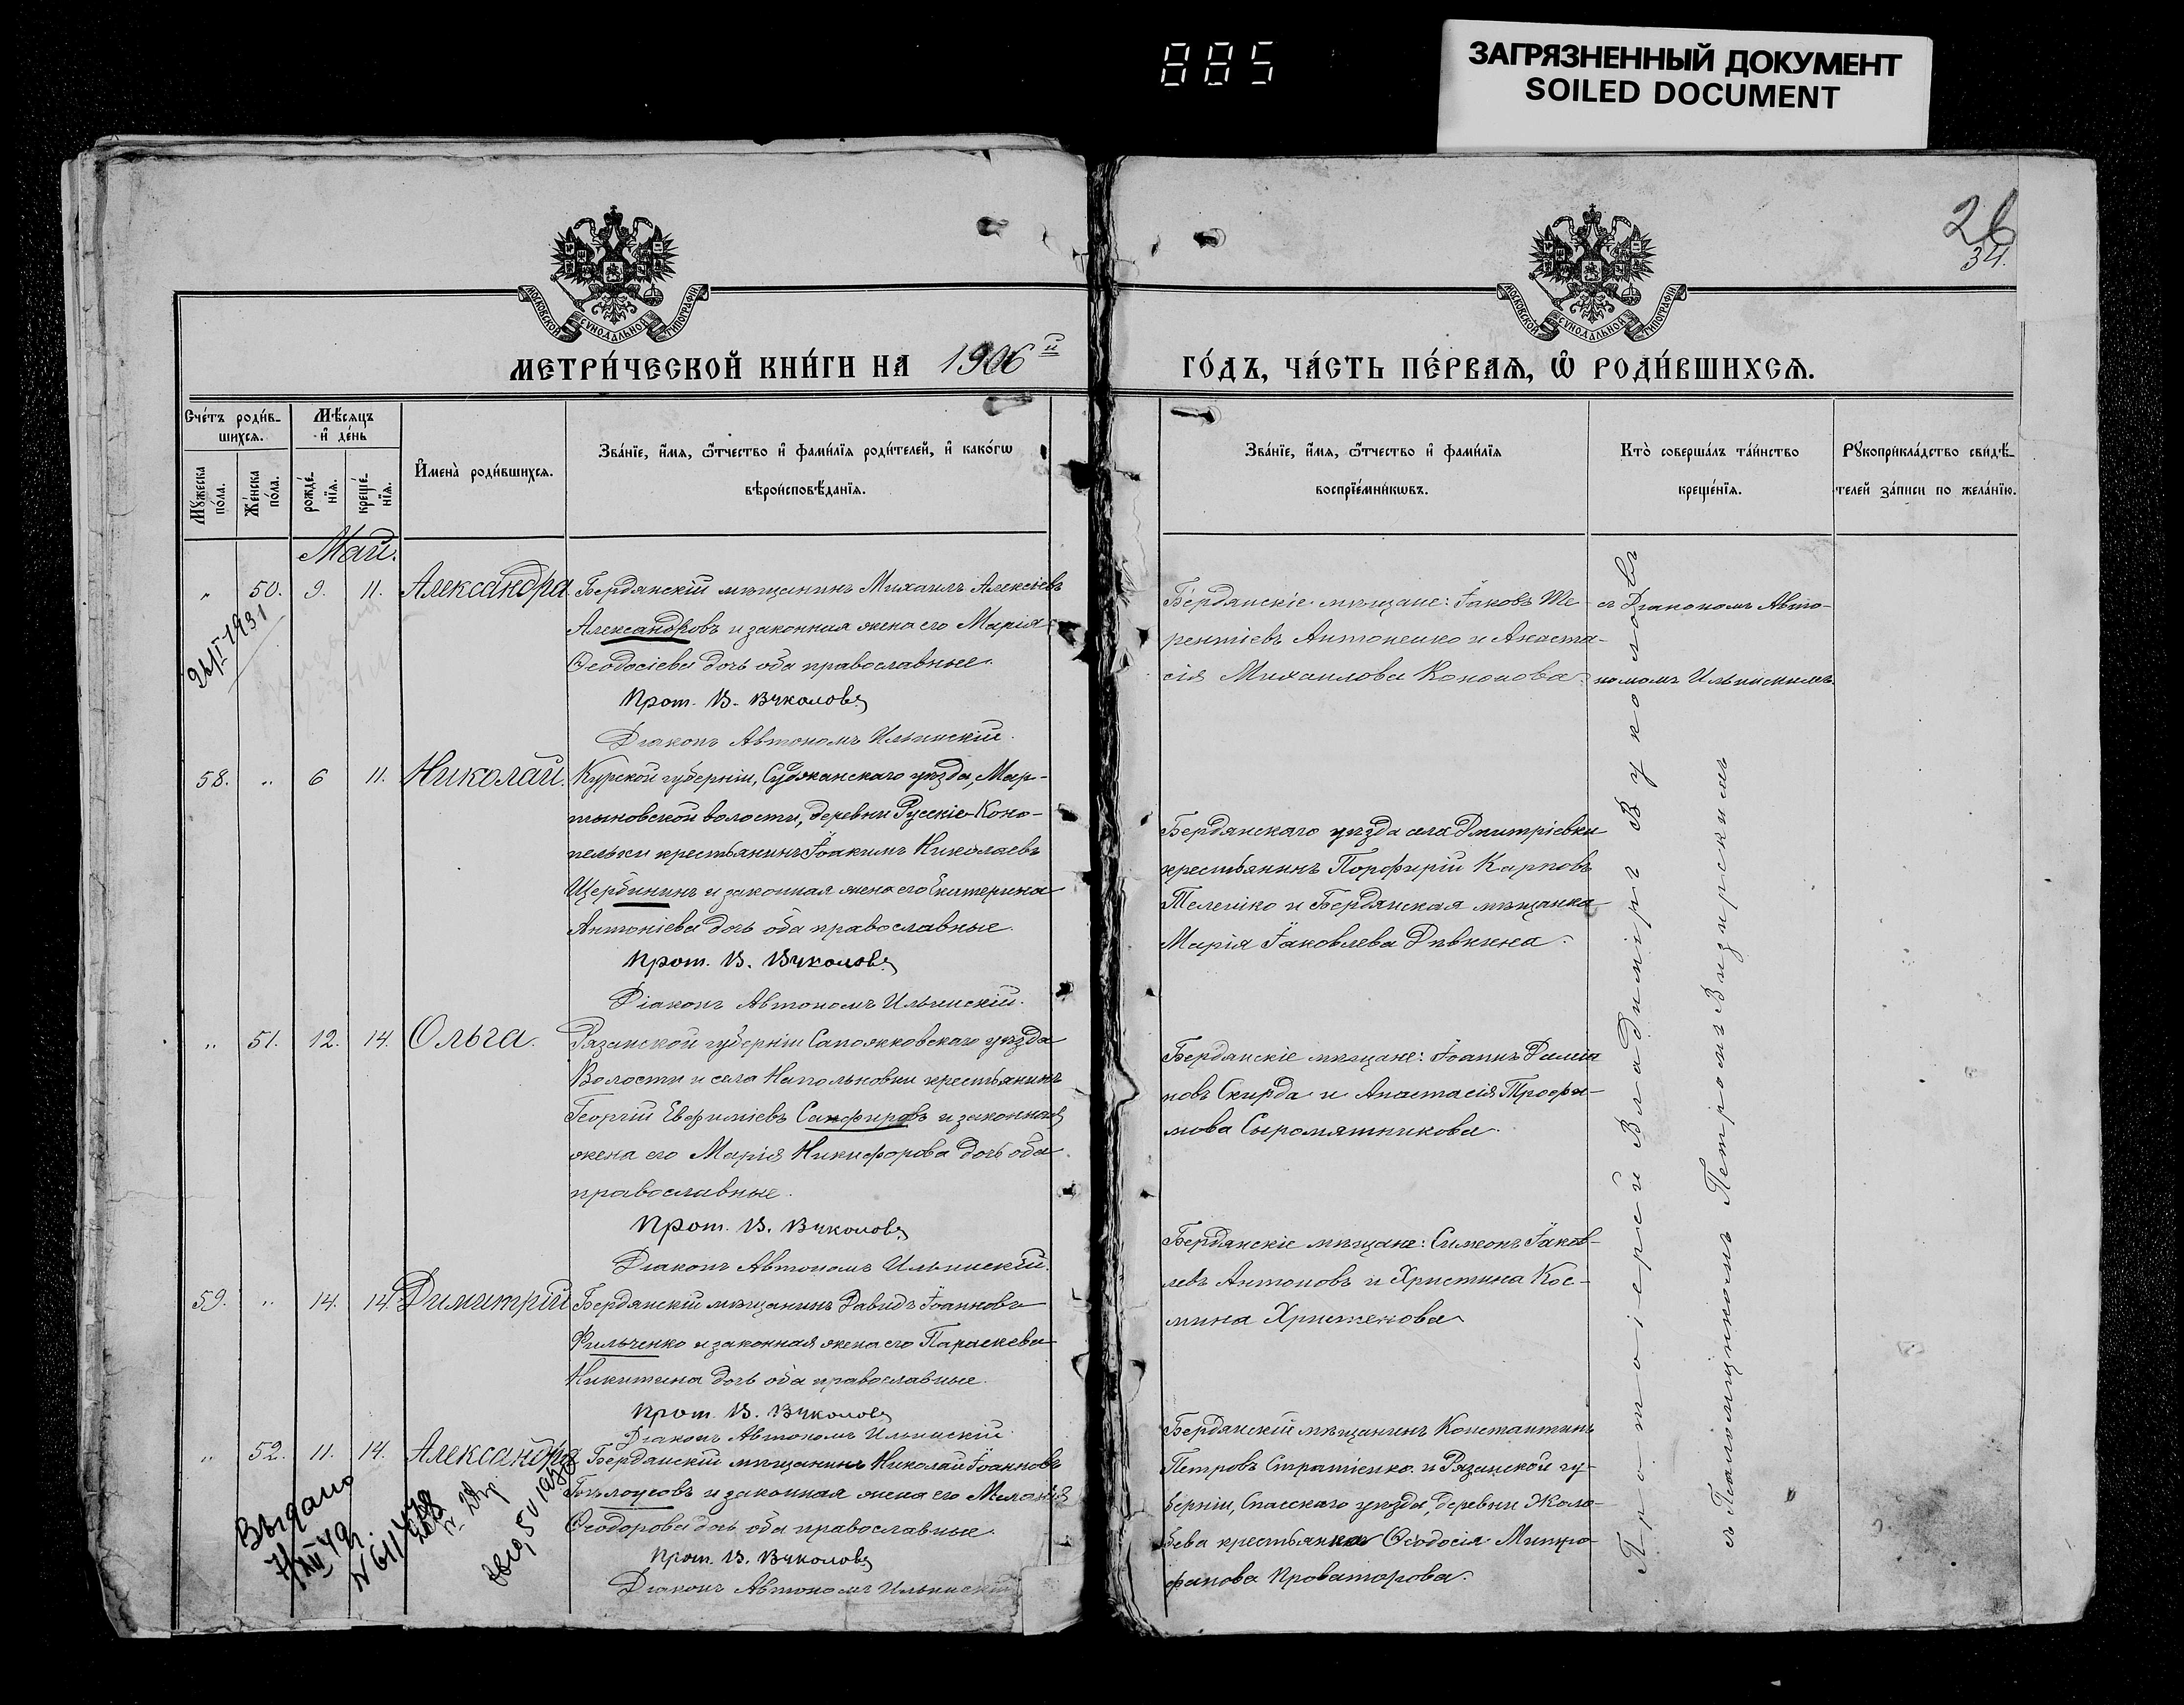 885
ЗАГРЯЗНЕННЫЙ ДОКУМЕНТ
SOILED DOCUMENT
26
34.
МОСКОВСКОЙ СѴНОДАЛЬНОЙ ТИПОГРАФІИ
МОСКОВСКОЙ СѴНОДАЛЬНОЙ ТИПОГРАФІИ
МЕТРИ́ЧЕСКОЙ КНИ́ГИ НА 1906й
ГО́ДЪ, ЧА́СТЬ ПЕ́РВАѦ, Ѽ РОДИ́ВШИХСѦ.
Сче́тъ роди́в-
шихсѧ.
Мꙋжеска по́ла.
Же́нска по́ла.
Мѣ́сяцъ
и҆ де́нь
рожде́-
нїѧ.
креще́-
нїѧ.
И҆мена̀ роди́вшихсѧ.
Зва́нїе, и҆́мѧ, ѻ҆́тчество и҆ фами́лїѧ роди́телей, и҆ како́гѡ
вѣроисповѣ́данїѧ.
Зва́нїе, и҆́мѧ, ѻ҆́тчество и҆ фами́лїѧ
воспрїе́мникѡвъ.
Кто̀ соверша́лъ та́инство
креще́нїѧ.
Рꙋкоприкла́дство свидѣ́-
телей за́писи по жела́нїю.
Май.
„ 50. 9. 11. Александра. Бердянскій мѣщанинъ Михаилъ Алексіевъ
Александровъ и законная жена его Марія
Ѳеодосіева дочь оба православные.
Прот. В. Вуколовъ
Діаконъ Автономъ Ильинскій.
Бердянскіе мѣщане: Іаковъ Те-
рентіевъ Антоненко и Анаста-
сія Михаилова Кононова.
съ Діакономъ Авто-
номомъ Ильинскимъ.
1931
58. „ 6 11. Николай. Курской губерніи, Суджанскаго уѣзда, Мар-
тыновской волости, деревни Русскіе Коно-
пельки крестьянинъ Іоакимъ Николаевъ
Щербининъ и законная жена его Екатерина
Антоніева дочь оба православные.
Прот. В. Вуколовъ
Діаконъ Автономъ Ильинскій.
Бердянскаго уѣзда села Дмитріевки
крестьянинъ Порфирій Карповъ
Телешко и Бердянская мѣщанка
Марія Іаковлева Дивнина.
„ 51. 12. 14. Ольга. Рязанской губерніи Сапожковскаго уѣзда
Волости и села Напольновки крестьянинъ
Георгій Евфиміевъ Санфировъ и законная
жена его Марія Никифорова дочь оба
православные.
Прот. В. Вуколовъ
Діаконъ Автономъ Ильинскій.
Бердянскіе мѣщане: Іоаннъ Даміа
новъ Скирда и Анастасія Трофи-
мова Сыромятникова.
59. „ 14. 14. Димитрій Бердянскій мѣщанинъ Давидъ Іоанновъ
Фильченко и законная жена его Параскева
Никитина дочь оба православные.
Прот. В. Вуколовъ
Діаконъ Автономъ Ильинскій.
Бердянскіе мѣщане: Симеонъ Іаков-
левъ Антоновъ и Христина Кос-
мина Христенова
„ 52. 11. 14. Александра Бердянскій мѣщанинъ Николай Іоанновъ
Бѣлоусовъ и законная жена его Меланія
Ѳеодорова дочь оба православные.
Прот. В. Вуколовъ
Діаконъ Автономъ Ильинскій
Бердянскій мѣщанинъ Константинъ
Петровъ Стратіенко и Рязанской гу-
берніи, Спасскаго уѣзда, деревни Жоло-
бева крестьянка Ѳеодосія Митро-
фанова Проваторова.
Выдано
Протоіерей Владиміръ Вуколовъ
съ Псаломщикомъ Петромъ Визирскимъ